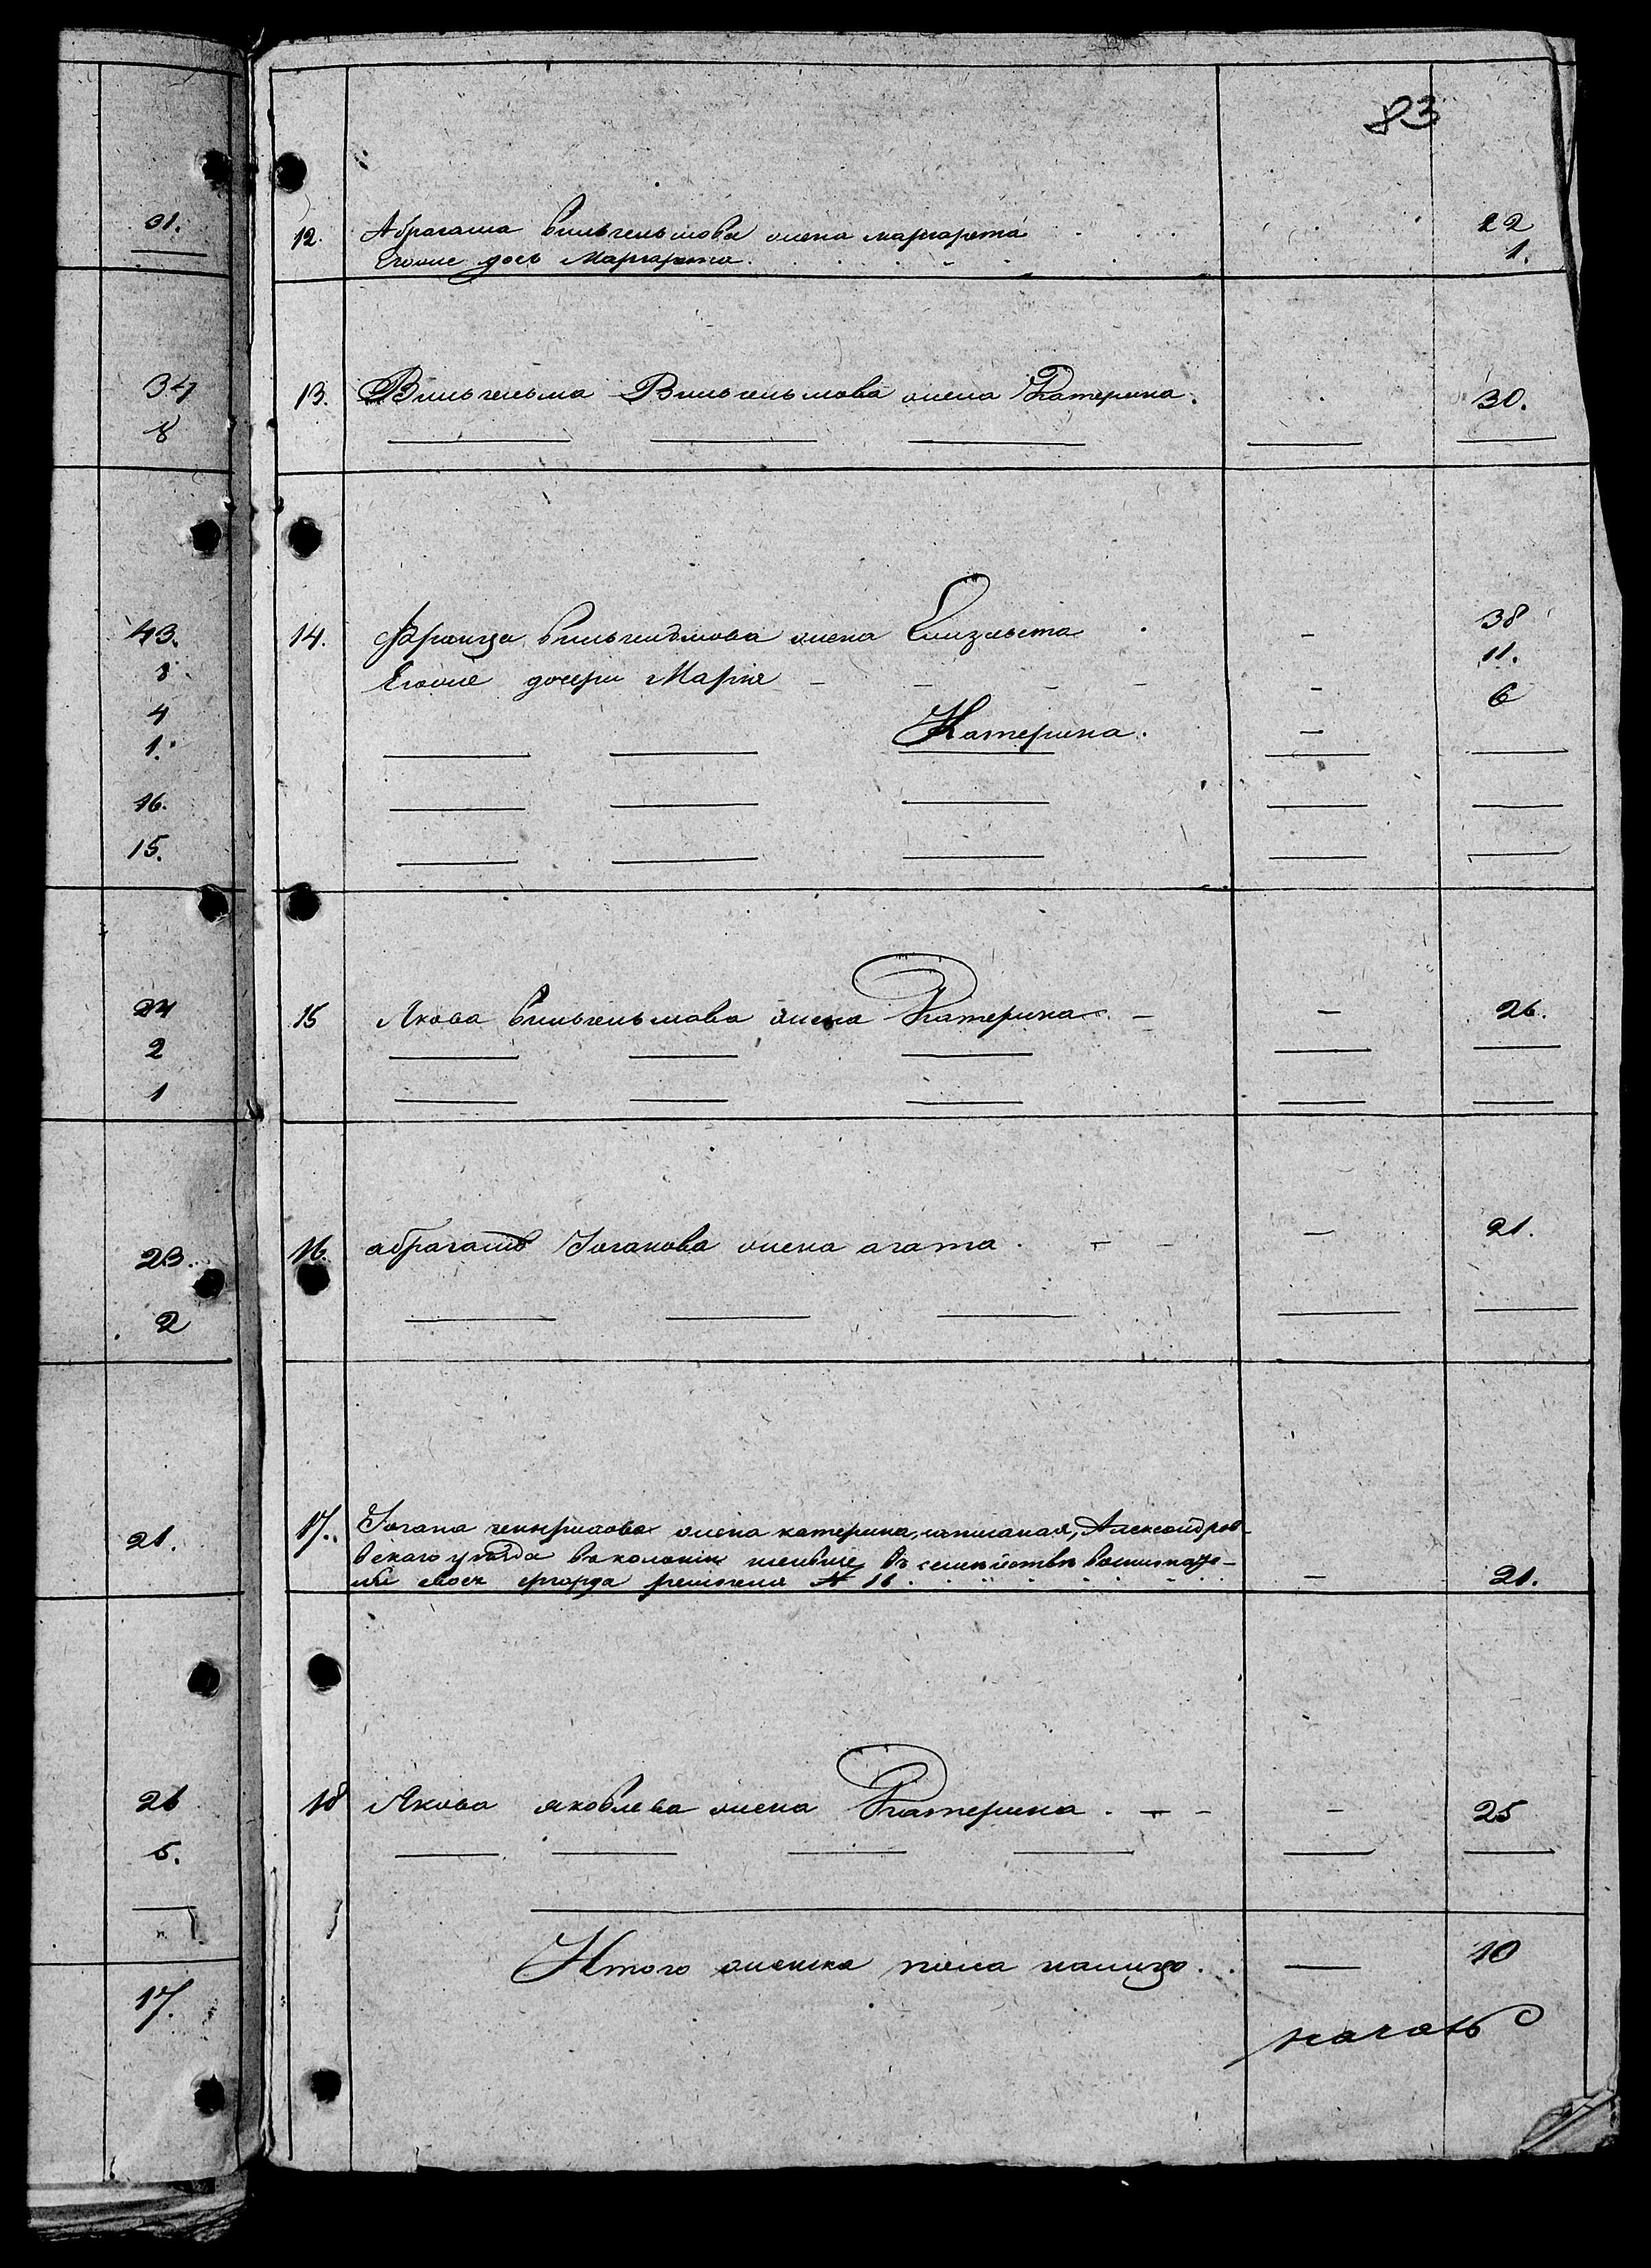 83
31.
12. Абрагама Вильгельмова жена маргарета 22
Егоже дочь Маргарета 1.
34
8
13. Вильгельма Вильгельмова жена Катерина. 30.
43.
8
4
1.
16.
15.
14. Франца Вильгельмова жена Елизавета 38
Егоже дочери Мария 11.
Катерина. 6
24
2
1
15 Якова Вильгельмова жена Катерина 26.
23.
2
16. абрагама Iоганова жена агата. 21.
21.
17. Iогана генрихова жена катерина, Александров-
вскаго уезда в колонии въ семействе
№ 16. 21.
26
5.
18 Якова яковлева жена Катерина. 25
17.
Итого женска пола налицо. 10